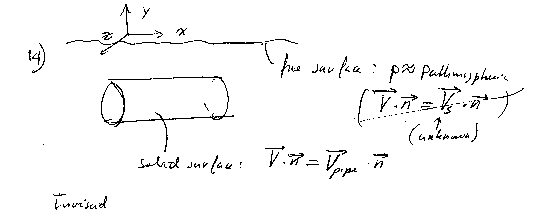 y
z x
14)
free surface : p ≈ p atmospheric
( V⃗ · n⃗ = V⃗s · n⃗ )
(unknown)
solid surface : V⃗ · n⃗ = V⃗pipe · n⃗
Inviscid